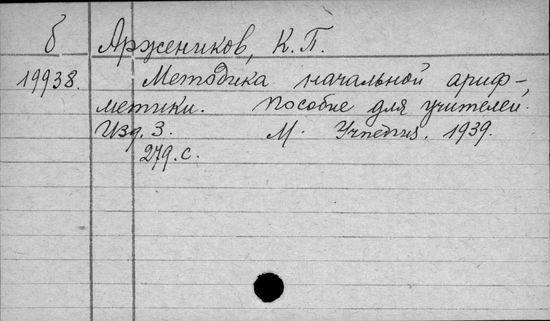 б Аржеников, К. П.
19938. Методика начальной ариф-
метики. Пособие для учителей.
Изд. 3. М. Учпедгиз. 1939.
279. с.